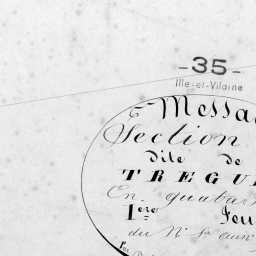 -35-
Ille-et-Vilaine
Messac
Section
dite de
TREGU
En quatre
1ère Feu
du N°